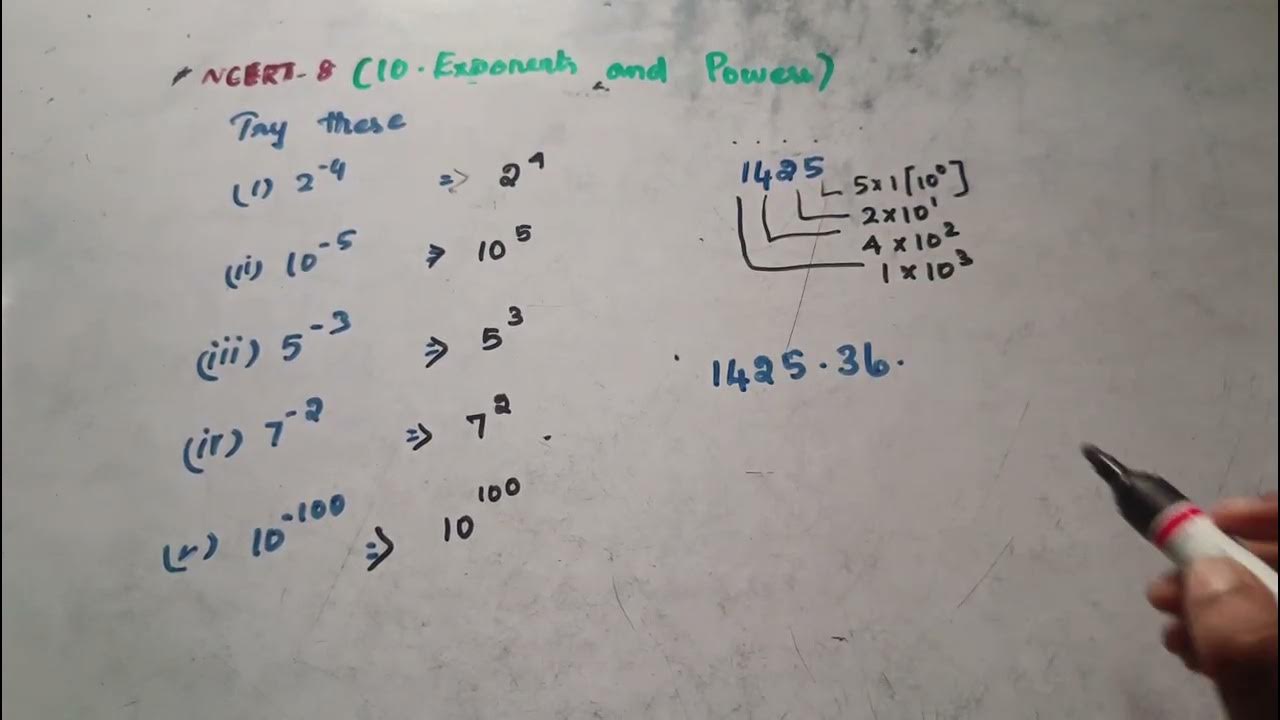 NCERT-8 (10. Exponents and Powers)
Try these
(i) 2⁻⁴ => 2⁴
(ii) 10⁻⁵ => 10⁵
(iii) 5⁻³ => 5³
(iv) 7⁻² => 7²
(v) 10⁻¹⁰⁰ => 10¹⁰⁰
1425
5×1[10⁰]
2×10¹
4×10²
1×10³
1425.36.